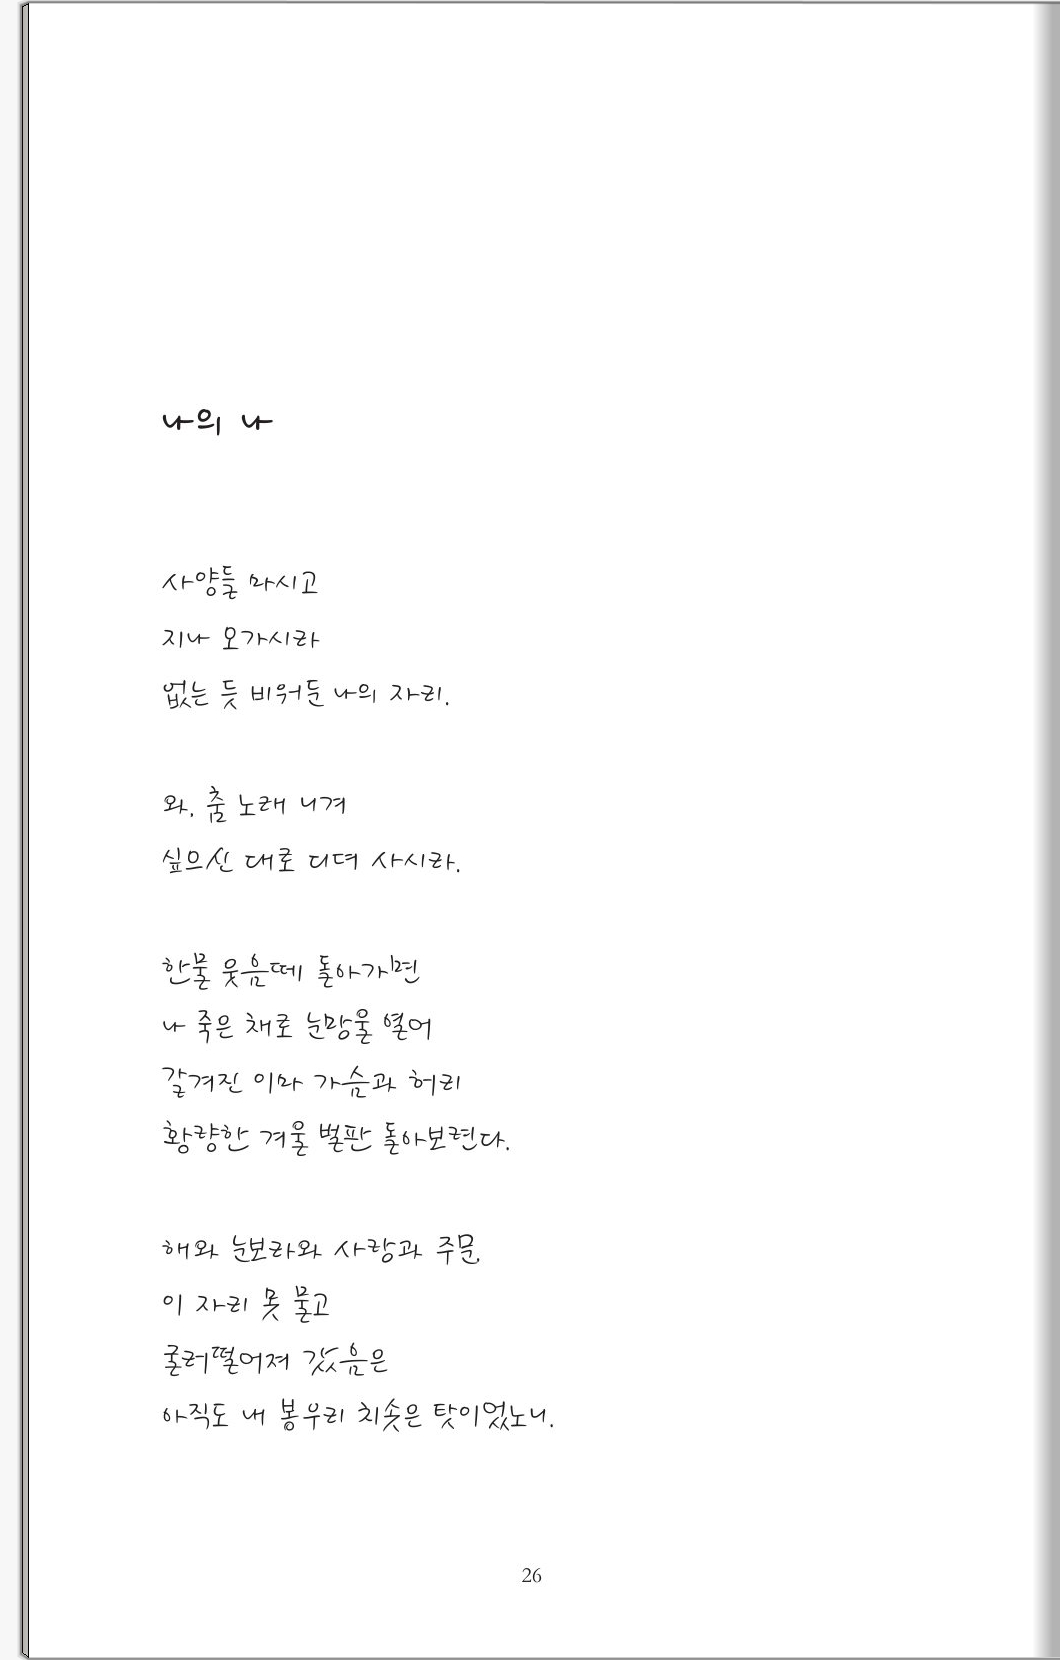 나의 나
사양들 마시고
지나 오가시라
없는 듯 비워둔 나의 자리.
와, 춤 노래 니겨
싶으신 대로 디뎌 사시라.
한물 웃음떼 돌아가면
나 죽은 채로 눈망울 열어
갈겨진 이마 가슴과 허리
황량한 겨울 벌판 돌아보련다.
해와 눈보라와 사랑과 주문,
이 자리 못 물고
굴러떨어져 갔음은
아직도 내 봉우리 치솟은 탓이었노니.
26